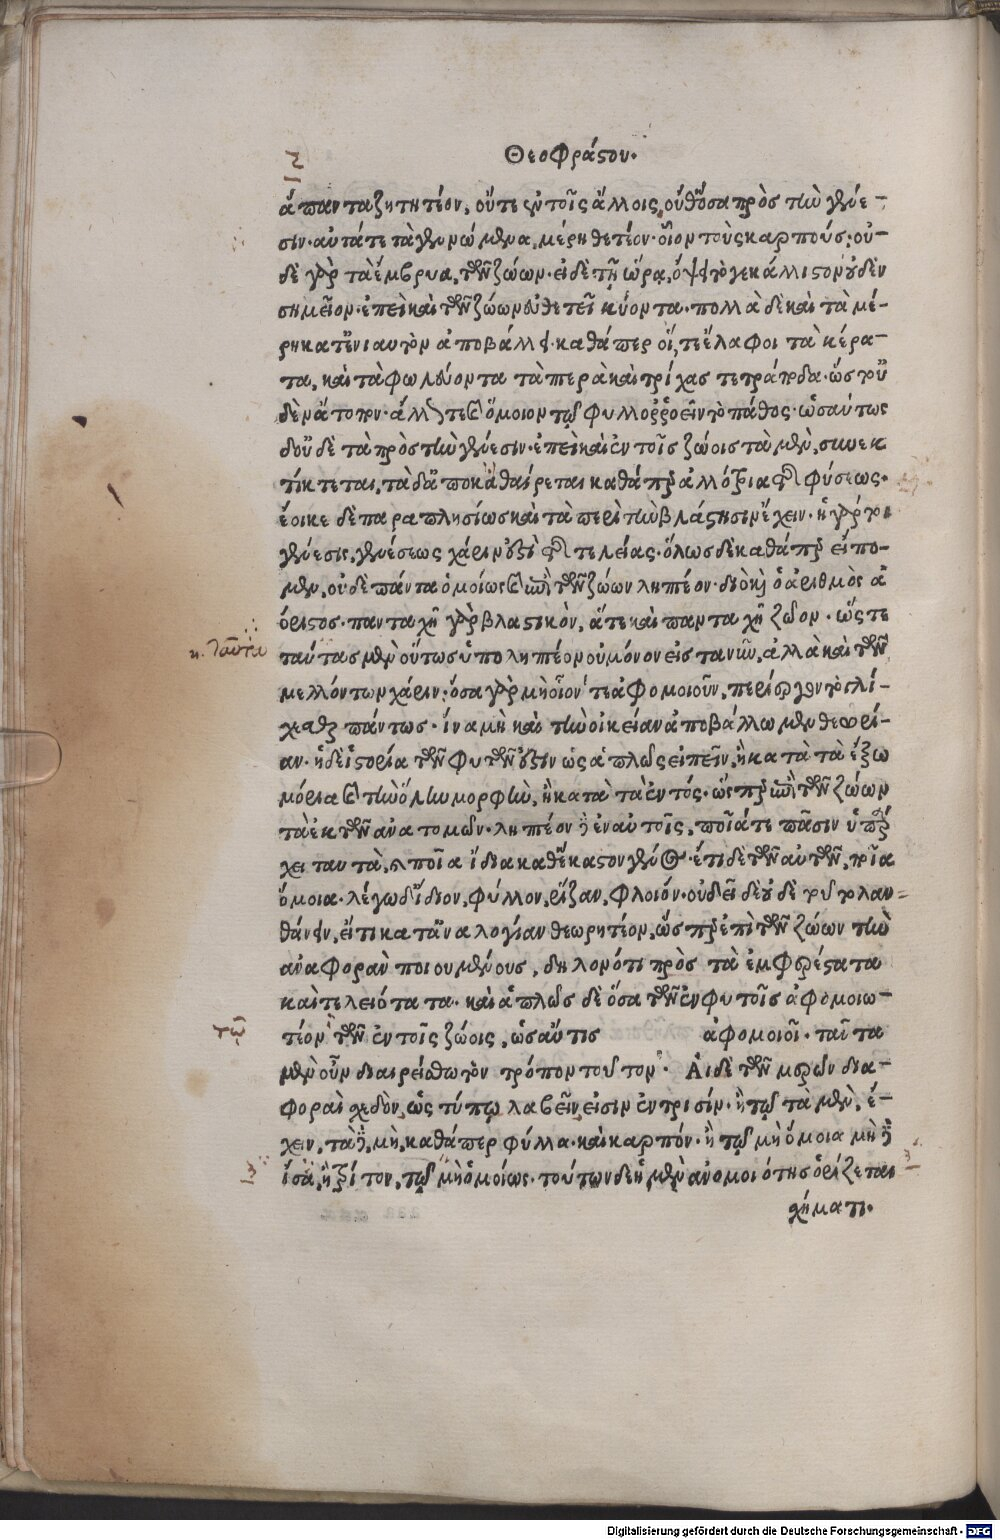 Θεοφράστου.
ἅπαντα ζητητέον, οὔτε ἐν τοῖς ἄλλοις, οὔθ' ὅσα πρὸς τὴν γένε-
σιν· αὐτά τε τὰ γεννώμενα, μέρη θετέον· οἷον τοὺς καρπούς· οὐ-
δὲ γὰρ τὰ ἔμβρυα, τῶν ζώων. εἰ δὲ τῇ ὥρᾳ, ὄψει τό γε κάλλιστον οὐδὲν
σημεῖον. ἐπεὶ καὶ τῶν ζώων εὐθετεῖ κύοντα. πολλὰ δὲ καὶ τὰ μέ-
ρη κατ' ἐνιαυτὸν ἀποβάλλει· καθάπερ οἵ, τε ἔλαφοι τὰ κέρα-
τα, καὶ τὰ φωλεύοντα τὰ πτερὰ καὶ τρίχας τετράποδα· ὥστ' οὐ
δὲν ἄτοπον· ἄλλως τε καὶ ὅμοιον τῷ φυλλορροεῖν τὸ πάθος· ὡσαύτως
δ' οὐδὲ τὰ πρὸς τὴν γένεσιν· ἐπεὶ καὶ ἐν τοῖς ζώοις τὰ μὲν, συνεκ
τίκτεται, τὰ δ' ἀποκαθαίρεται καθάπερ ἀλλότρια τῆς φύσεως.
ἔοικε δὲ παραπλησίως καὶ τὰ περὶ τὴν βλάστησιν ἔχειν· ἡ γάρ τοι
γένεσις, γενέσεως χάριν ἐστὶ τῆς τελείας. ὅλως δὲ καθάπερ εἴπο-
μεν, οὐδὲ πάντα ὁμοίως καὶ ἐπὶ τῶν ζώων ληπτέον· διὸ καὶ ὁ ἀριθμὸς ἀ
όριστος· πανταχῇ γὰρ βλαστικὸν, ἅτε καὶ πανταχῇ ζῶον. ὥστε
ταύτας μὲν οὕτως ὑποληπτέον οὐ μόνον εἰς τὰ νῦν, ἀλλὰ καὶ τῶν
μελλόντων χάριν· ὅσα γὰρ μὴ οἷόν τε ἀφομοιοῦν, περίεργον τὸ γλί-
χεσθαι πάντως· ἵνα μὴ καὶ τὴν οἰκείαν ἀποβάλλωμεν θεωρί-
αν. ἡ δὲ ἱστορία τῶν φυτῶν ἐστὶν ὡς ἁπλῶς εἰπεῖν, ἢ κατὰ τὰ ἔξω
μόρια καὶ τὴν ὅλην μορφὴν, ἢ κατὰ τὰ ἐντός· ὥσπερ ἐπὶ τῶν ζώων
τὰ ἐκ τῶν ἀνατομῶν. ληπτέον δ' ἐν αὐτοῖς, ποῖά τε πᾶσιν ὑπάρ
χει ταυτὰ, καὶ ποῖα ἴδια καθ' ἕκαστον γένος. ἔτι δὲ τῶν αὐτῶν, ποῖα
ὅμοια· λέγω δ' οἷον, φύλλον, ῥίζαν, φλοιόν. οὐ δεῖ δὲ οὐδὲ τοῦτο λαν=
θάνειν, εἴ τι κατ' ἀναλογίαν θεωρητέον, ὥσπερ ἐπὶ τῶν ζώων τὴν
ἀναφορὰν ποιουμένους, δηλονότι πρὸς τὰ ἐμφερέστατα
καὶ τελειότατα. καὶ ἁπλῶς δὲ ὅσα τῶν ἐν φυτοῖς ἀφομοιω-
τῷ
τέον τῶν ἐν τοῖς ζώοις, ὡς ἄν τις ἀφομοιοῖ. ταῦτα
μὲν οὖν διαιρείσθω τὸν τρόπον τοῦτον. Αἱ δὲ τῶν μερῶν δια-
φοραὶ σχεδὸν, ὡς τύπῳ λαβεῖν, εἰσὶν ἐν τρισίν· ἢ τῷ τὰ μὲν, ἔ-
χειν, τὰ δὲ, μὴ, καθάπερ φύλλα καὶ καρπόν· ἢ τῷ μὴ ὅμοια μὴ δὲ
ἴσα, ἢ τρίτον, τῷ μὴ ὁμοίως. τούτων δὲ ἡ μὲν ἀνομοιότης ὁρίζεται
σχήματι.
Digitalisierung gefördert durch die Deutsche Forschungsgemeinschaft - DFG